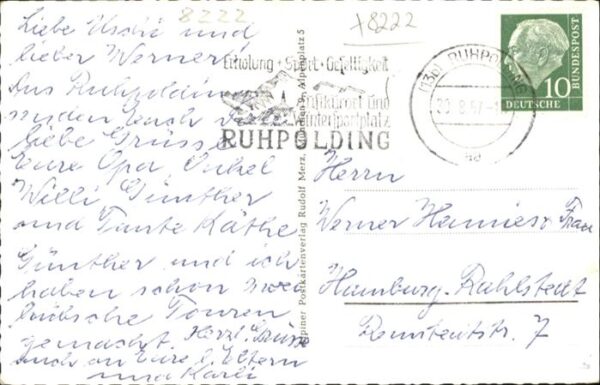 8222
+8222
Liebe Uschi und
lieber Werner!
Aus Ruhpolding
senden Euch viele
liebe Grüsse
Eure Opa, Onkel
Willi Günther
und Tante Käthe
Günther und ich
haben schon
hübsche Touren
gemacht. Herzl. Grüsse
auch an Eure l. Eltern
und Karli
Alpiner Postkartenverlag Rudolf Merz, München 9, Alpenplatz 5
Erholung + Sport + Geselligkeit
Luftkurort und
Wintersportplatz
RUHPOLDING
(13b) RUHPOLDING
10
DEUTSCHE
BUNDESPOST
Herrn
Werner Frau
Hamburg-Rahlstedt
7